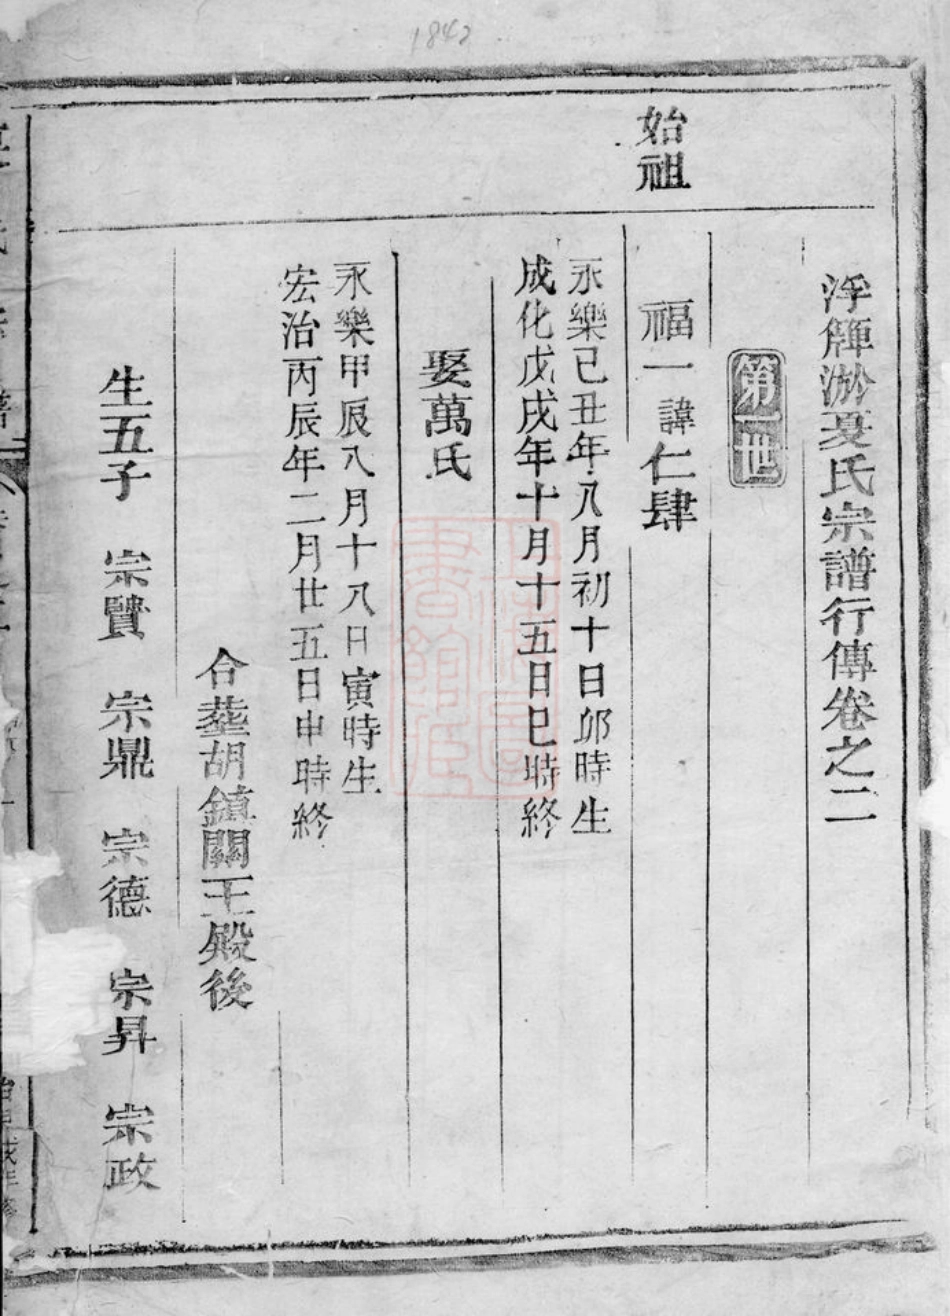 1842
浮𦉢淤夏氏宗譜行傳卷之二
第一世
始祖
福一諱仁肆
永樂己丑年八月初十日卯時生
成化戊戌年十月十五日巳時終
娶萬氏
永樂甲辰八月十八日寅時生
宏治丙辰年二月廿五日申時終
合塟胡鎮關王殿後
生五子 宗賢 宗鼎 宗德 宗昇 宗政